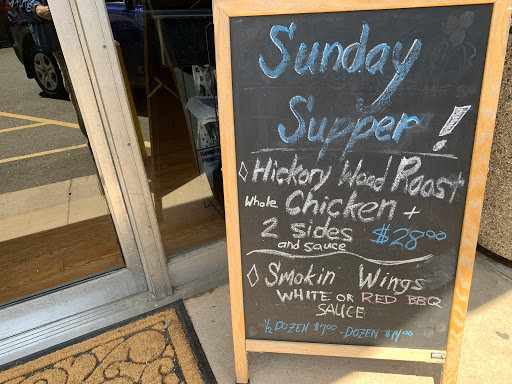 Sunday
Supper!
◊ Hickory Wood Roast
Whole Chicken +
2 sides
and sauce $28.00
◊ Smokin Wings
WHITE OR RED BBQ
SAUCE
1/2 DOZEN $7.00 - DOZEN $14.00